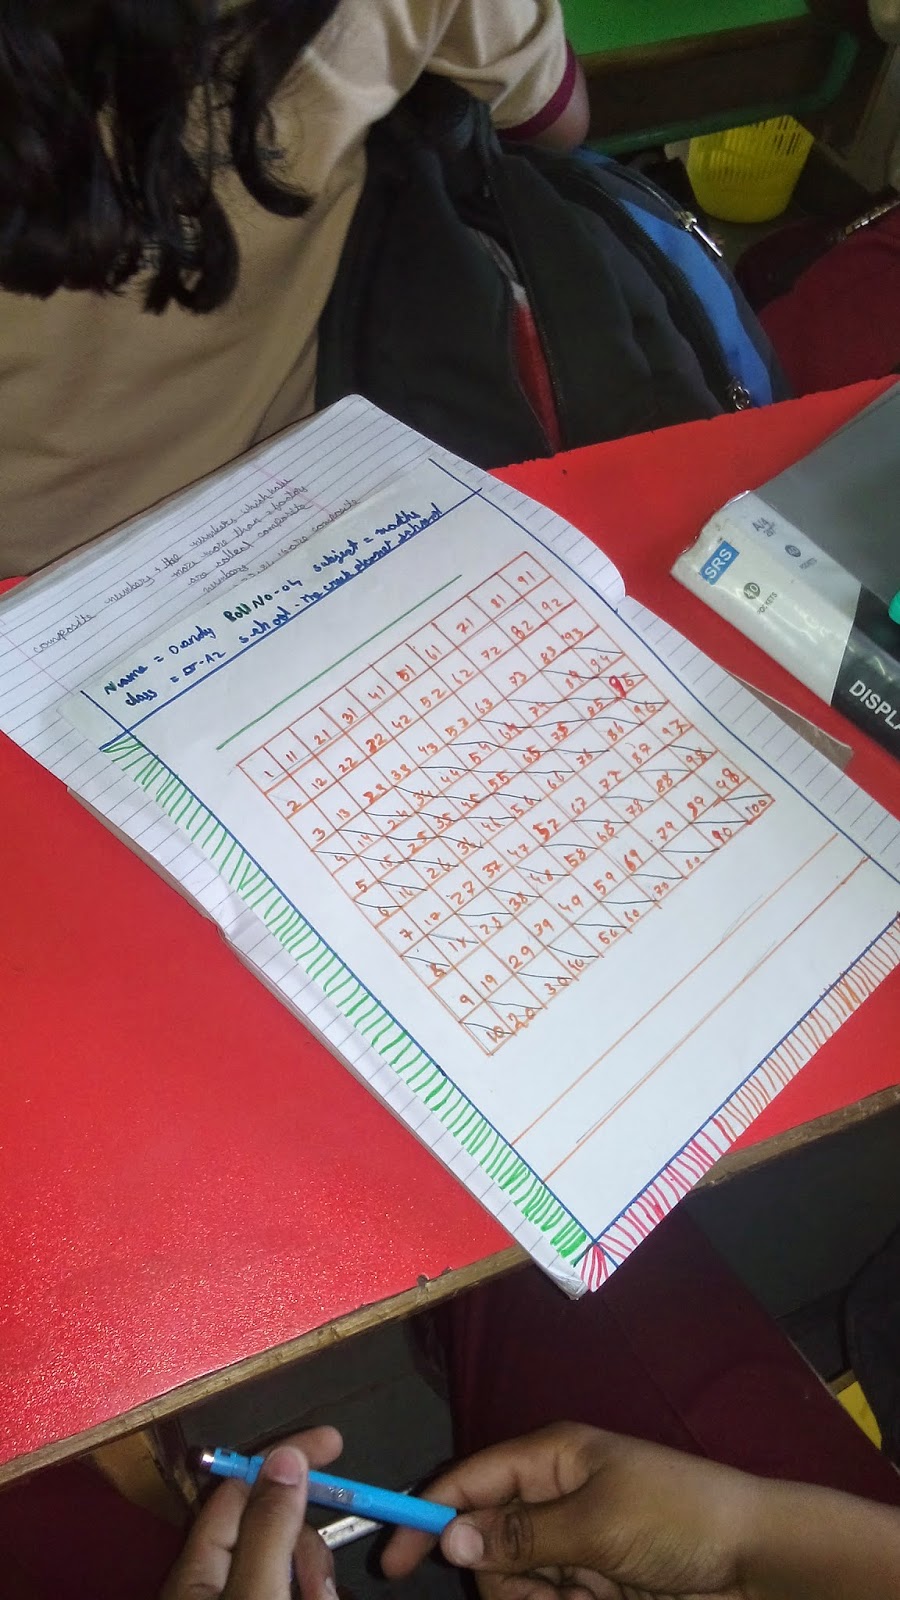 composite numbers : the numbers which have
more more than 2 factors
are called composite
numbers
are composite
Name = Dandy Roll No-04 subject = maths
class = IV-A2 school - The creek planet school
1 11 21 31 41 51 61 71 81 91
2 12 22 32 42 52 62 72 82 92
3 13 23 33 43 53 63 73 83 93
4 14 24 34 44 54 64 74 84 94
5 15 25 35 45 55 65 75 85 95
6 16 26 36 46 56 66 76 86 96
7 17 27 37 47 57 67 77 87 97
8 18 28 38 48 58 68 78 88 98
9 19 29 39 49 59 69 79 89 98
10 20 30 40 50 60 70 80 90 100
SRS
A/4
40
POCKETS
DISPLA